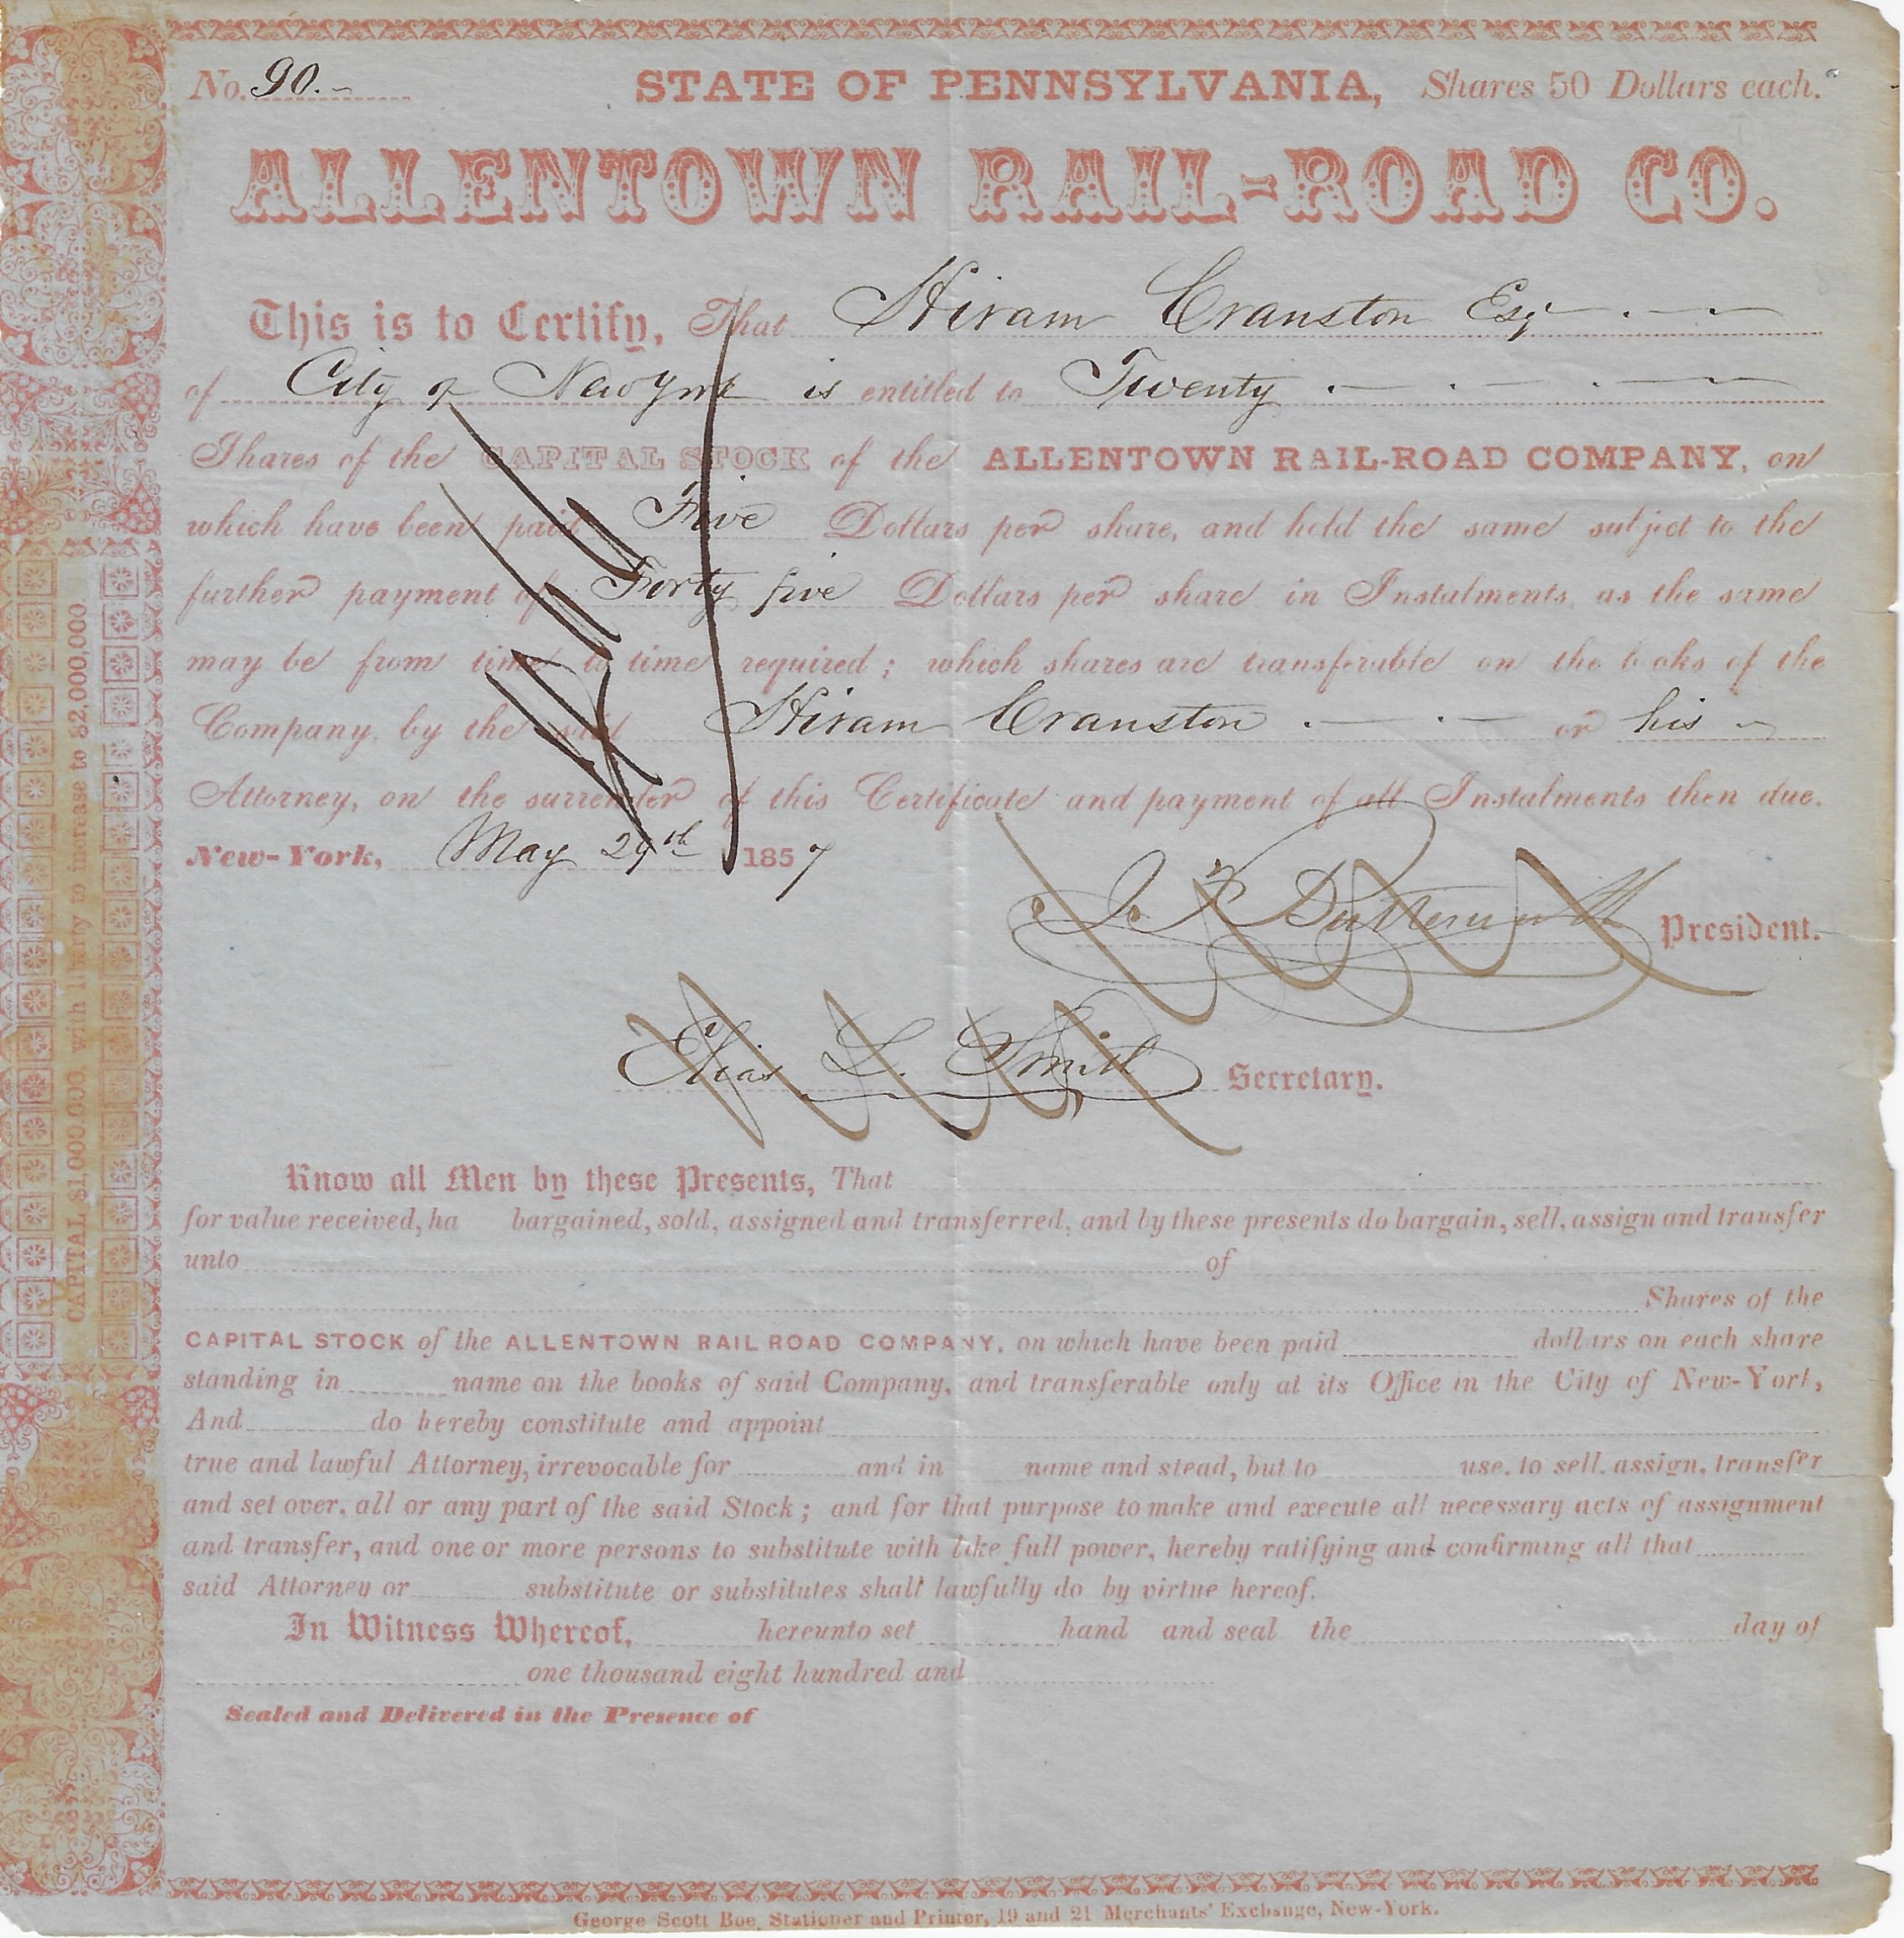 No. 90.
STATE OF PENNSYLVANIA, Shares 50 Dollars each.
ALLENTOWN RAIL-ROAD CO.
This is to Certify, That Hiram Cranston Esq
of City of New York is entitled to Twenty
Shares of the CAPITAL STOCK of the ALLENTOWN RAIL-ROAD COMPANY, on
which have been paid Five Dollars per share, and hold the same subject to the
further payment of Forty five Dollars per share in Instalments, as the same
may be from time to time required; which shares are transferable on the books of the
Company, by the said Hiram Cranston or his
Attorney, on the surrender of this Certificate and payment of all Instalments then due.
New-York, May 29th 1857
J. F. Butterworth President.
Elias L. Smith Secretary.
Know all Men by these Presents, That
for value received, ha bargained, sold, assigned and transferred, and by these presents do bargain, sell, assign and transfer
unto of
Shares of the
CAPITAL STOCK of the ALLENTOWN RAIL ROAD COMPANY, on which have been paid dollars on each share
standing in name on the books of said Company, and transferable only at its Office in the City of New-York,
And do hereby constitute and appoint
true and lawful Attorney, irrevocable for and in name and stead, but to use, to sell, assign, transfer
and set over, all or any part of the said Stock; and for that purpose to make and execute all necessary acts of assignment
and transfer, and one or more persons to substitute with like full power, hereby ratifying and confirming all that
said Attorney or substitute or substitutes shall lawfully do by virtue hereof.
In Witness Whereof, hereunto set hand and seal the day of
one thousand eight hundred and
Sealed and Delivered in the Presence of
George Scott Roe, Stationer and Printer, 19 and 21 Merchants' Exchange, New-York.
CAPITAL $1,000,000, with liberty to increase to $2,000,000